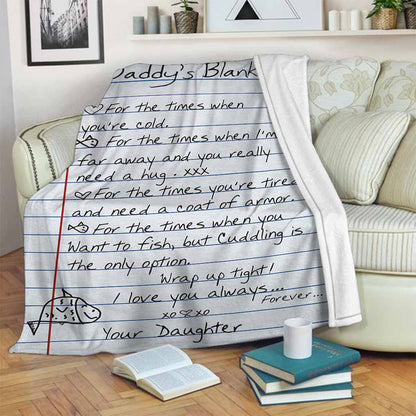 Daddy's Blank
For the times when
you're cold.
For the times when I'm
far away and you really
need a hug. xxx
For the times you're tired
and need a coat of armor.
For the times when you
Want to fish, but Cuddling is
the only option.
Wrap up tight!
I love you always...
Forever...
xoxo
Your Daughter